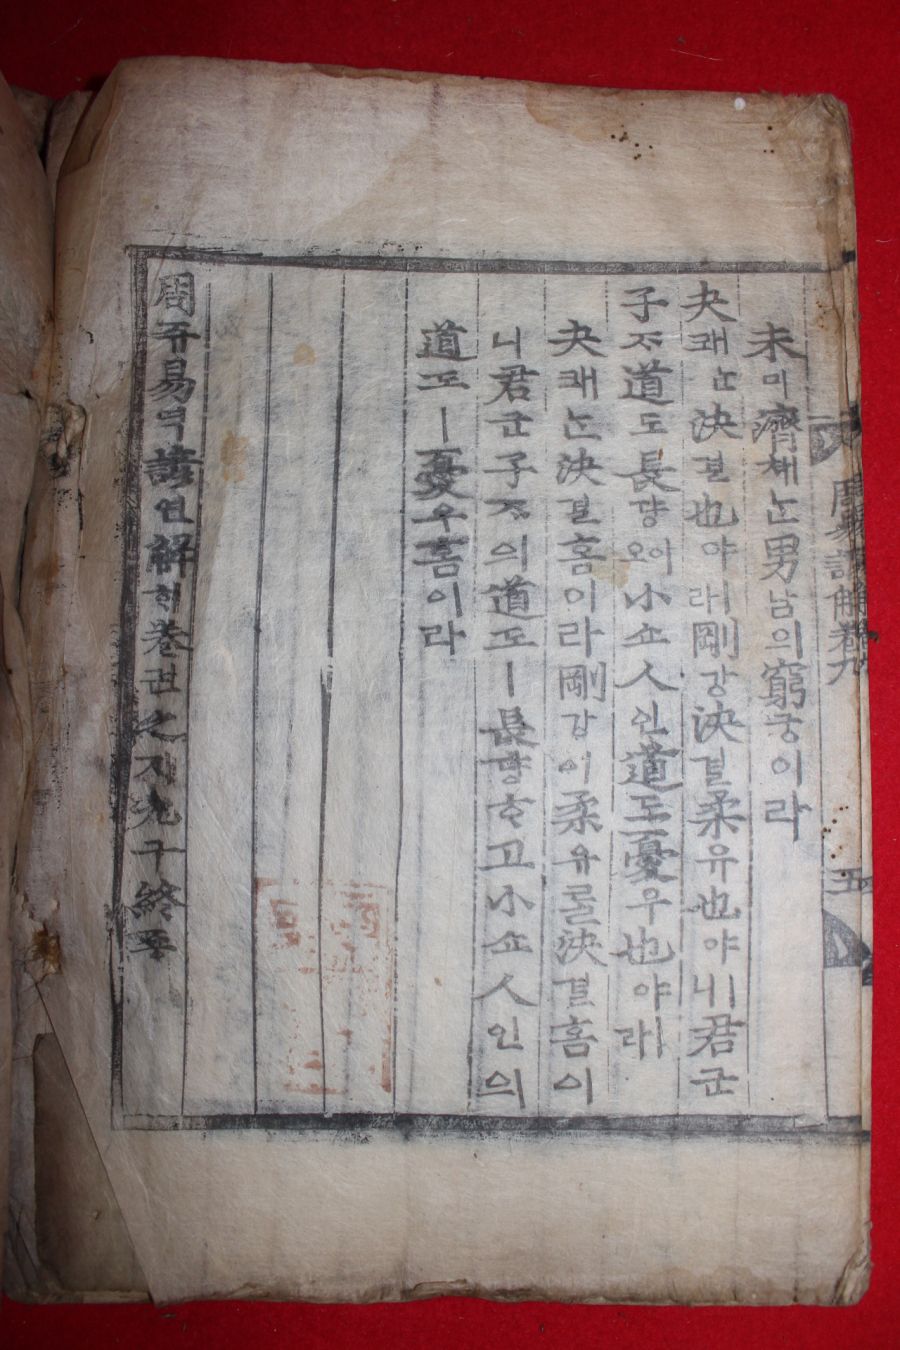 周易諺解卷九 五
未미濟졔ᄂᆞᆫ男남의窮궁이라
夬쾌ᄂᆞᆫ決결也야ㅣ라剛강決결柔유也야ㅣ니君군
子ᄌᆞ道도長댱이오小쇼人인道도憂우也야ㅣ라
夬쾌ᄂᆞᆫ決결홈이라剛강이柔유를決결홈이
니君군子ᄌᆞ의道도ㅣ長댱ᄒᆞ고小쇼人인의
道도ㅣ憂우홈이라
周쥬易역諺언解ᄒᆡ卷권之지九구終죵